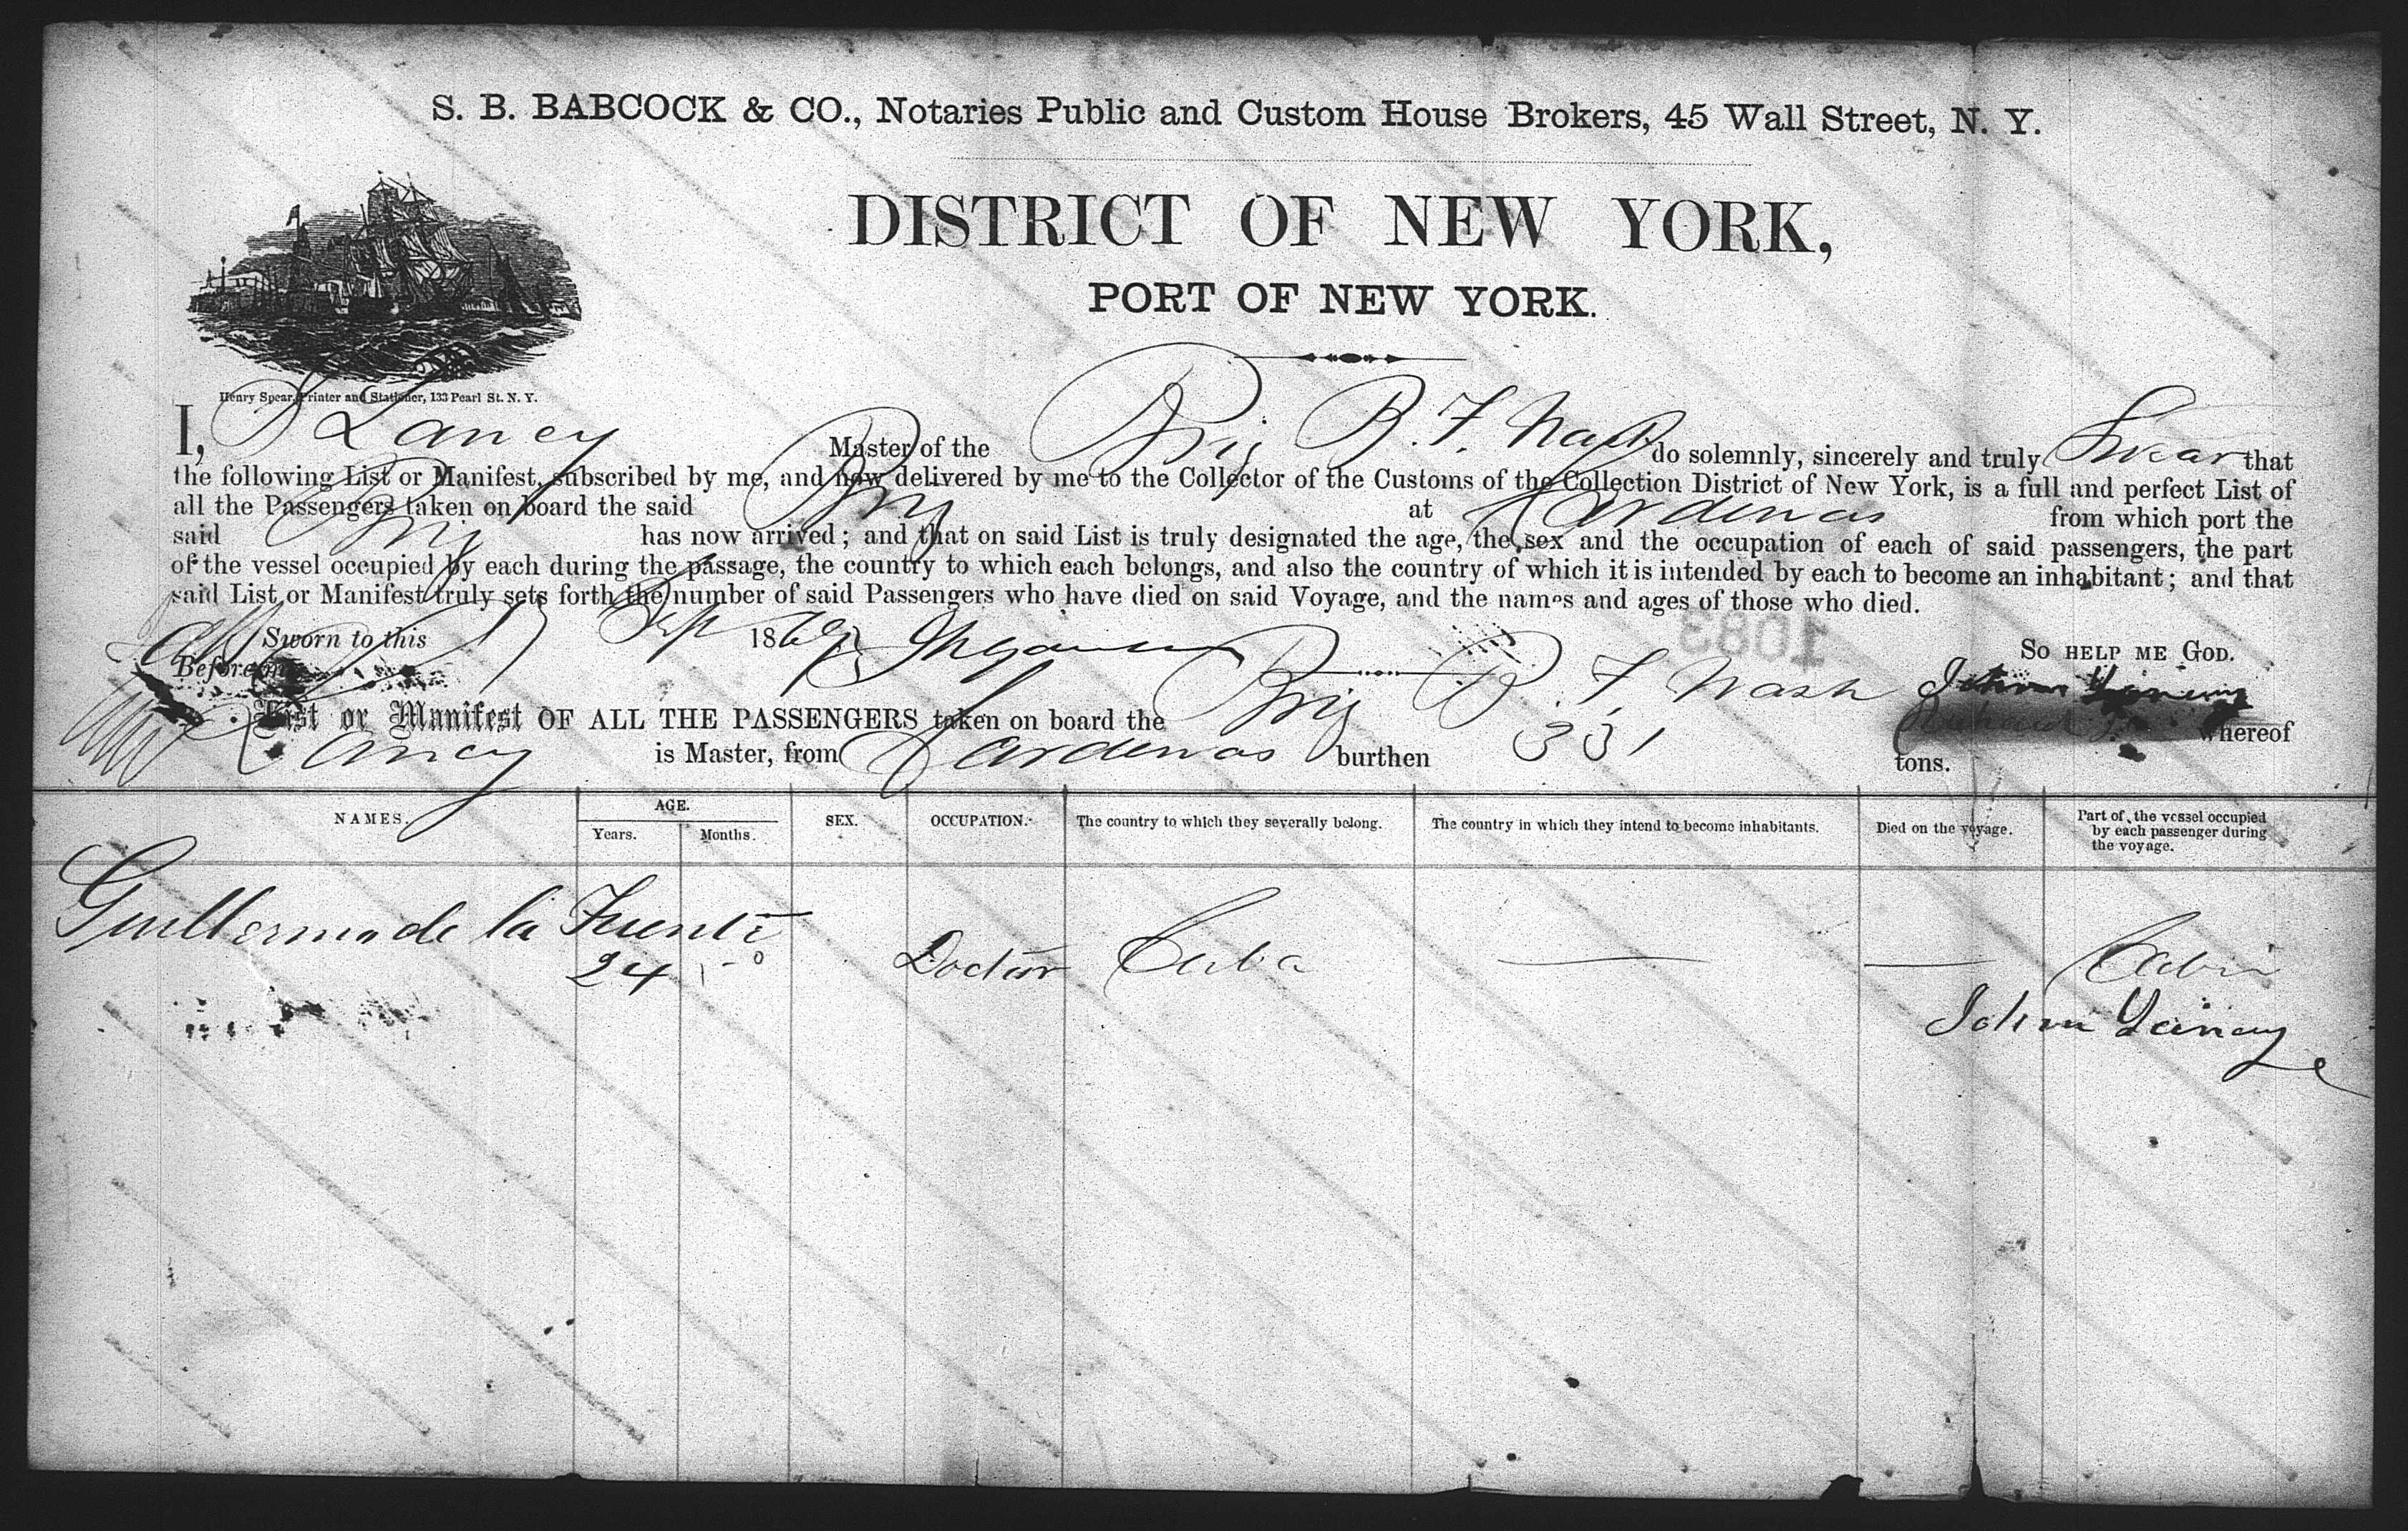 S. B. BABCOCK & CO., Notaries Public and Custom House Brokers, 45 Wall Street, N. Y.
DISTRICT OF NEW YORK,
PORT OF NEW YORK.
Henry Spear, Printer and Stationer, 133 Pearl St. N. Y.
I, Lancy Master of the Brig B. F. Nash do solemnly, sincerely and truly Swear that
the following List or Manifest, subscribed by me, and now delivered by me to the Collector of the Customs of the Collection District of New York, is a full and perfect List of
all the Passengers taken on board the said Brig at Cardenas from which port the
said Brig has now arrived; and that on said List is truly designated the age, the sex and the occupation of each of said passengers, the part
of the vessel occupied by each during the passage, the country to which each belongs, and also the country of which it is intended by each to become an inhabitant; and that
said List or Manifest truly sets forth the number of said Passengers who have died on said Voyage, and the names and ages of those who died.
Sworn to this Sep 1869 1083 So HELP ME GOD.
Before me
List or Manifest OF ALL THE PASSENGERS taken on board the Brig B. F. Nash whereof
Lancy is Master, from Cardenas burthen 331 tons.
NAMES. AGE. Years. Months. SEX. OCCUPATION. The country to which they severally belong. The country in which they intend to become inhabitants. Died on the voyage. Part of the vessel occupied by each passenger during the voyage.
Guillermo de la Fuente
24 - 0 Doctor Cuba Cabin
John Lancy